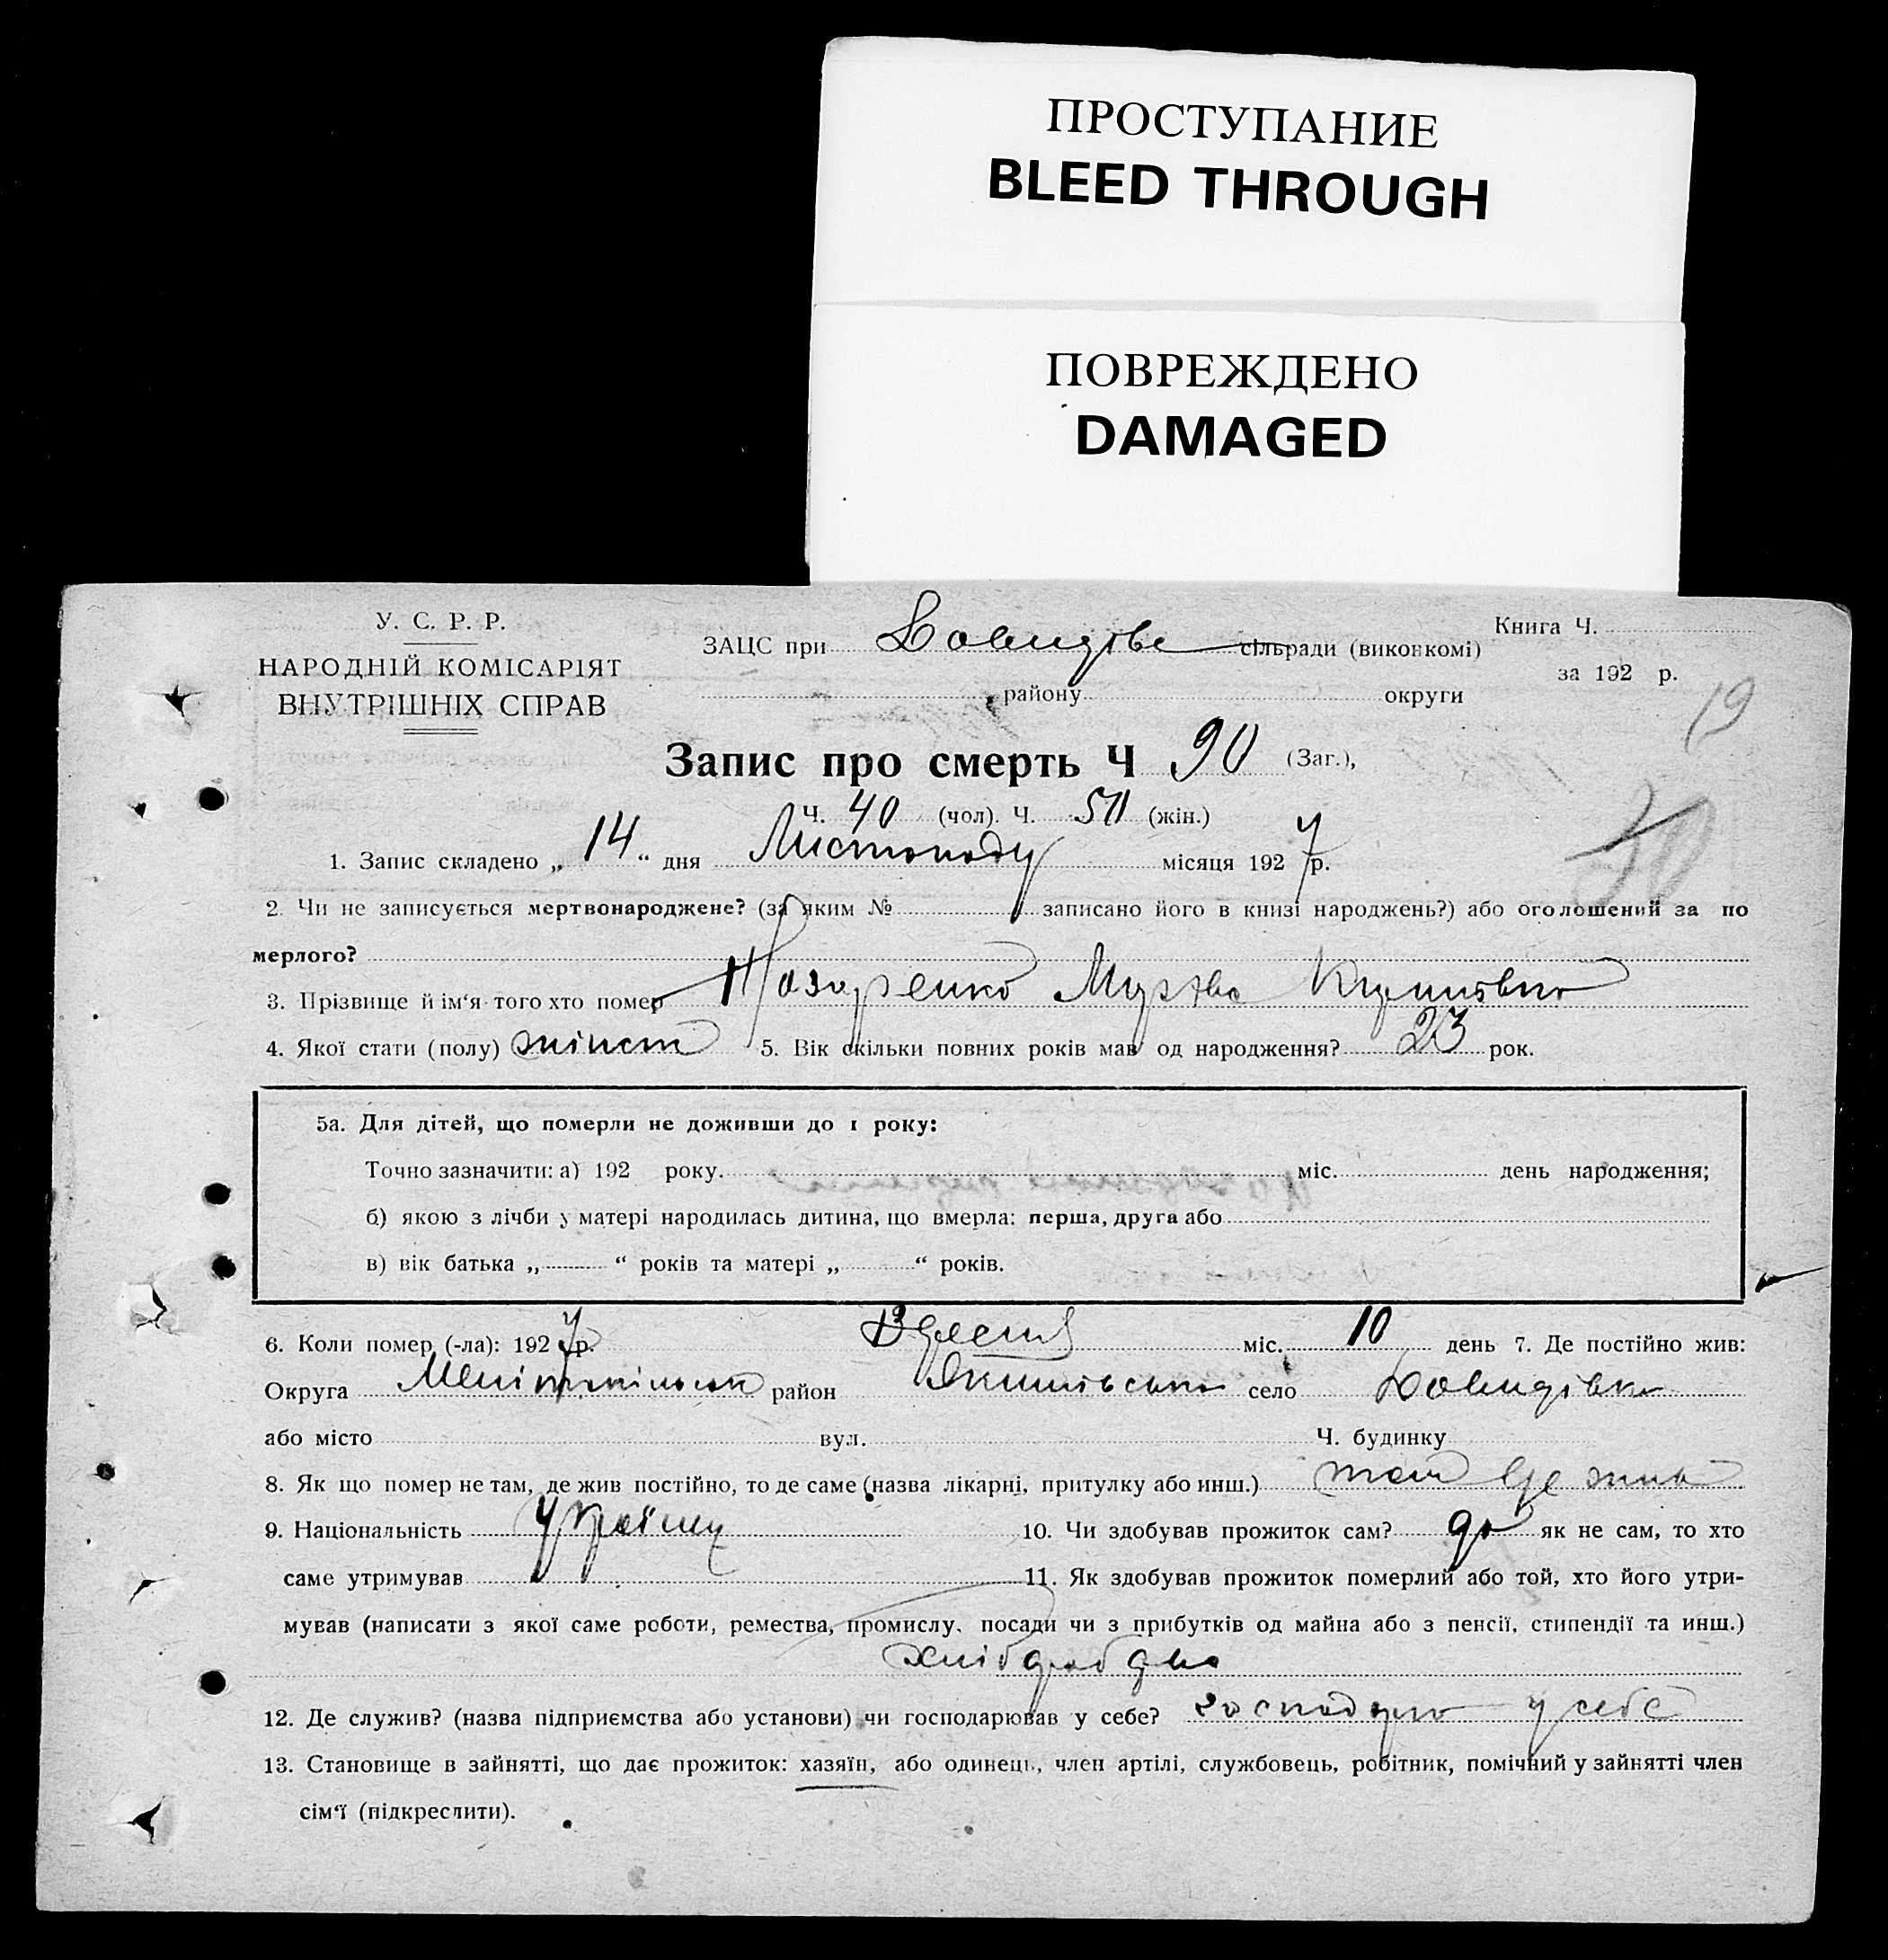 ПРОСТУПАНИЕ
BLEED THROUGH
ПОВРЕЖДЕНО
DAMAGED
У. С. Р. Р.
НАРОДНІЙ КОМІСАРІЯТ
ВНУТРІШНІХ СПРАВ
ЗАЦС при Давидівс сільради (виконкомі)
району округи
Книга Ч.
за 192 р.
19
Запис про смерть Ч 90 (Заг.),
30
Ч. 40 (чол). Ч. 50 (жін.)
1. Запис складено „ 14 “ дня Листопаду місяця 1927 р.
2. Чи не записується мертвонароджене? (за яким № записано його в книзі народжень?) або оголошений за по
мерлого?
3. Прізвище й ім‘я того хто помер Назаренко Марфа
4. Якої стати (полу) жіноч 5. Вік скільки повних років мав од народження? 23 рок.
5а. Для дітей, що померли не доживши до 1 року:
Точно зазначити: а) 192 року. міс. день народження;
б) якою з лічби у матері народилась дитина, що вмерла: перша, друга або
в) вік батька „ “ років та матері „ “ років.
6. Коли помер (-ла): 1927 р. Вересня міс. 10 день 7. Де постійно жив:
Округа Мелітопільськ район Якимівсько село Давидівка
або місто вул. Ч. будинку
8. Як що помер не там, де жив постійно, то де саме (назва лікарні, притулку або инш.) там де жив
9. Національність Україн 10. Чи здобував прожиток сам? да як не сам, то хто
саме утримував 11. Як здобував прожиток померлий або той, хто його утри-
мував (написати з якої саме роботи, ремества, промислу, посади чи з прибутків од майна або з пенсії, стипендії та инш.)
12. Де служив? (назва підприємства або установи) чи господарював у себе? господарю у себе
13. Становище в зайнятті, що дає прожиток: хазяїн, або одинець, член артілі, службовець, робітник, помічний у зайнятті член
сім‘ї (підкреслити).